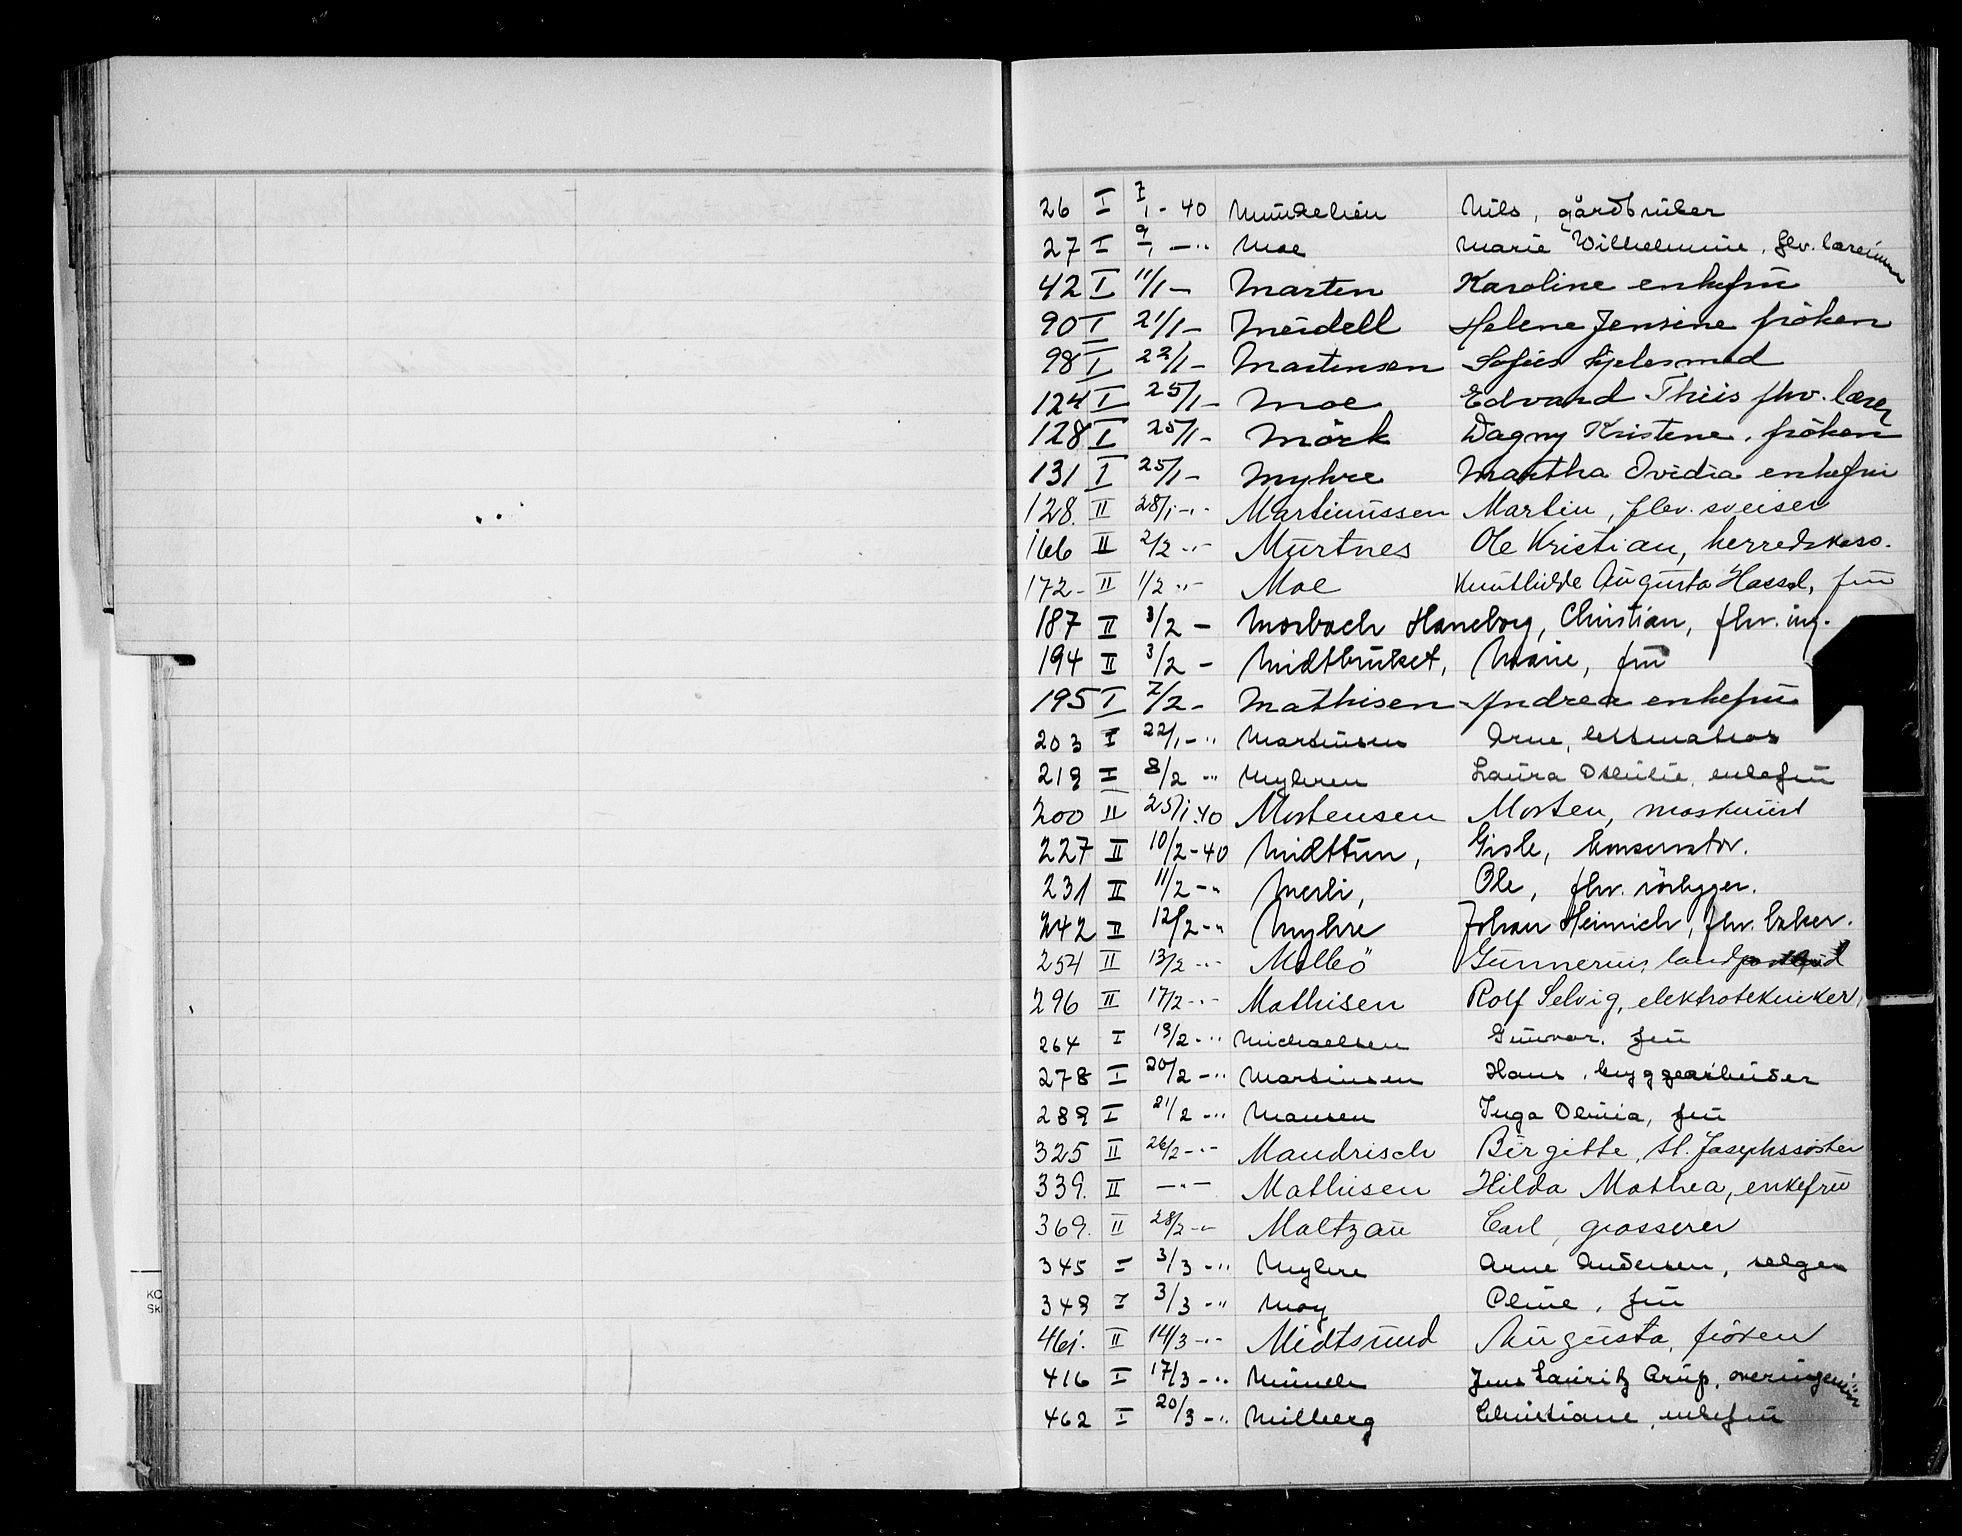 26 I 7/1 - 40 Nils, gårdbruker
27 I 9/1 - " Moe Marie Wilhelmine, fhv. lærerinne
42 I 11/1 - Marten Karoline enkefru
90 I 21/1 - Meidell Helene Jensine fröken
98 I 22/1 - Martensen Sofies
124 I 25/1 - Moe Edvard Thiis fhv. lærer
128 I 25/1 - Mörk Dagny Kristene, fröken
131 I 25/1 - Myhre Martha Ovidia enkefru
128. II 28/1 - " - Martinussen Martin, fhv. sveiser
166 II 2/2 " - Murtnes Ole Kristian, herredskass.
172 - II 1/2 " - Moe Augusta Hassel, fru
187 II 3/2 - Morbach Haneborg, Christian, fhv. ing.
194 II 3/2 - Midtbruket, Marie, fru
195 I 7/2 - Mathisen Andrea enkefru
203 I 22/1 - " Martinsen Arne, lettmatros
219 I 8/2 - " Myhren Laura Othilie, enkefru
200 II 25/1.40 Mortensen Morten, maskinist
227 II 10/2 - 40 Midttun, Gisle, konservator.
231 II 11/2 - " Merli, Ole, fhv. rörlegger.
242 II 12/2 - " Myhre Johan Heinrich, fhv. baker.
254 II 13/2 - " - Mollö Gunnerius, landpostbud
296 II 17/2 - " - Mathisen Rolf Selvig, elektrotekniker,
264 I 19/2 - " Michaelsen Gunvor, fru
278 I 20/2 - " Martinsen Hans, bryggearbeider
289 I 21/2 - " Mansen Inga Olivia, fru
325 II 26/2 - " - Mandrisch Birgitte, St. Josephssöster
339. II - " - Mathisen Hilda Mathea, enkefru
369. II 28/2 - " - Maltzau Carl, grosserer
345 I 3/3 - " Myhre Arne Andersen, selger
349 I 3/3 - " Moy Oline, fru
461. II 14/3 - " - Midtsund Augusta, fröken
416 I 17/3 - " Münch Jens Lauritz Arup, overingeniör
462 I 20/3 - " Milberg Christiane, enkefru